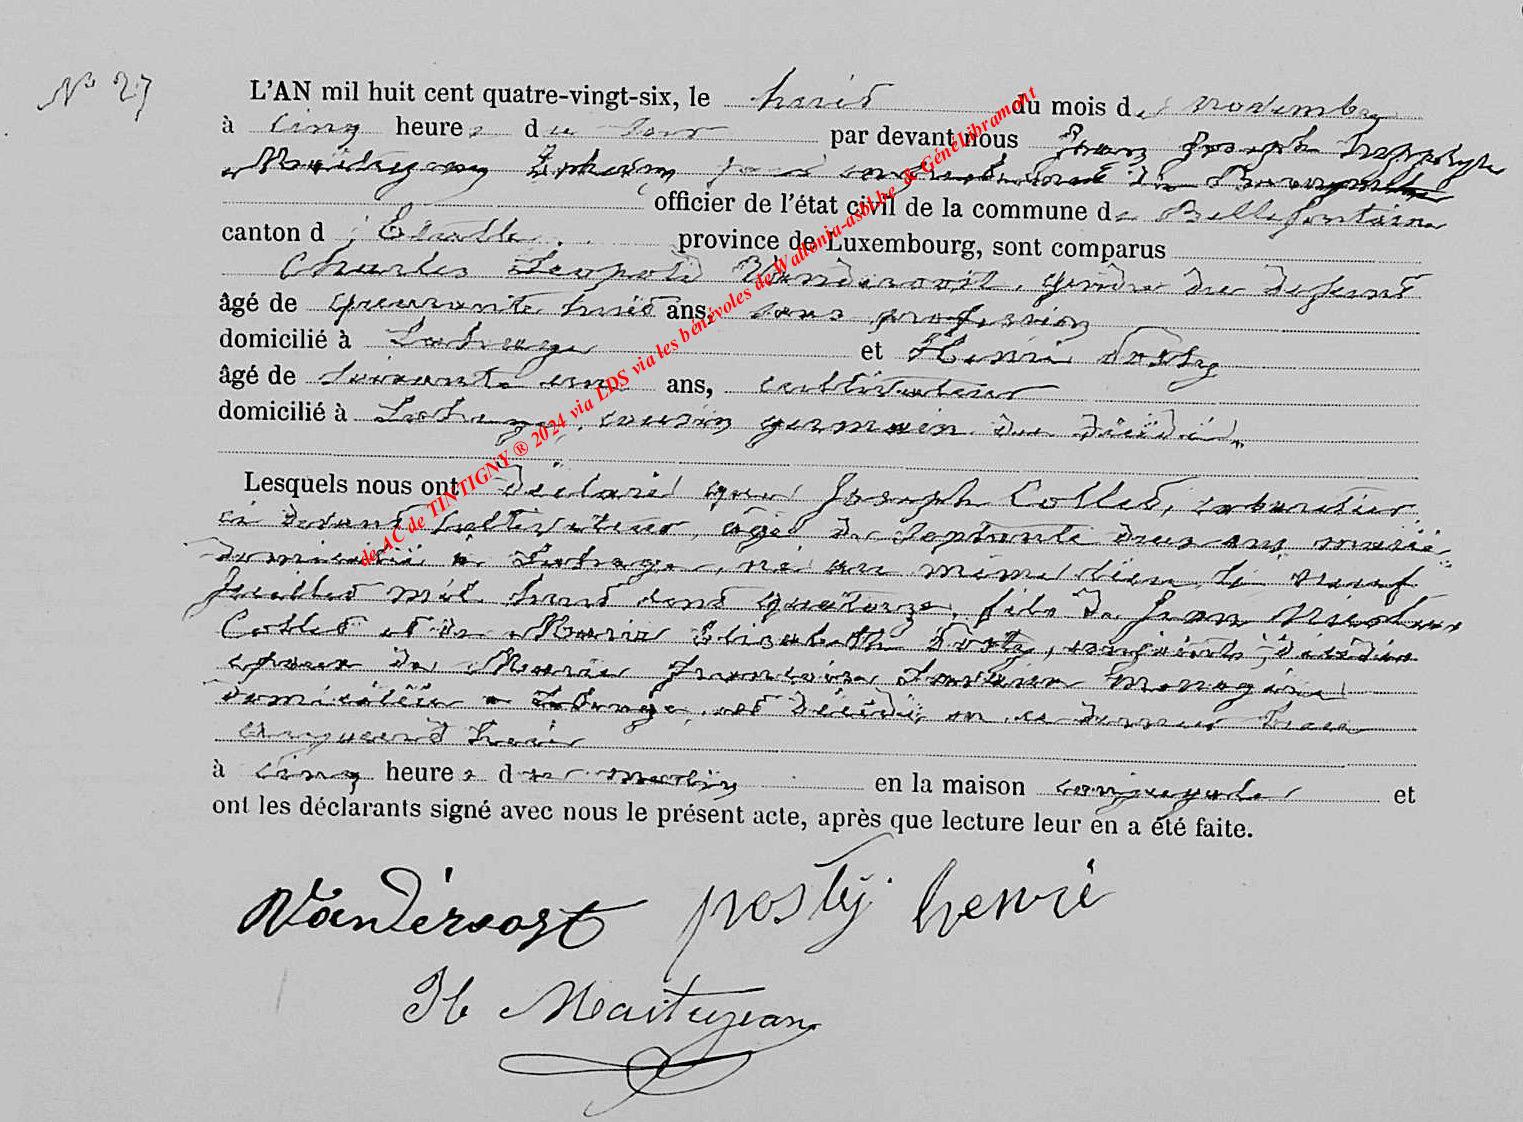 N° 27
L'AN mil huit cent quatre-vingt-six, le huit du mois de novembre
à cinq heures du soir par devant nous Jean Joseph Hyppolyte
Maitrejean Echevin
officier de l'état civil de la commune de Bellefontaine
canton d'Etalle province de Luxembourg, sont comparus
Charles Leopold Vandersost, gendre du defunt
âgé de quarante huit ans, sans profession
domicilié à Lahage et Henri Posty
âgé de soixante un ans, cultivateur
domicilié à Lahage, cousin germain du décédé,
Lesquels nous ont déclaré que Joseph Collet,
ci devant cultivateur, âgé de septante deux ans marié
domicilié à Lahage, né au même lieu le neuf
Juillet mil huit cent quatorze, fils de Jean Nicolas
Collet et de Marie Elizabeth Posty, conjoints décédés
epoux de Marie Françoise menagère
domiciliée à Lahage, est décédé en ce dernier lieu
aujourd'hui
à cinq heures du matin en la maison conjugale et
ont les déclarants signé avec nous le présent acte, après que lecture leur en a été faite.
Vandersost posty henri
H Maitrejean
de AC de TINTIGNY ® 2024 via LDS via les bénévoles de Wallonia-asbl.be & GénéLibramont